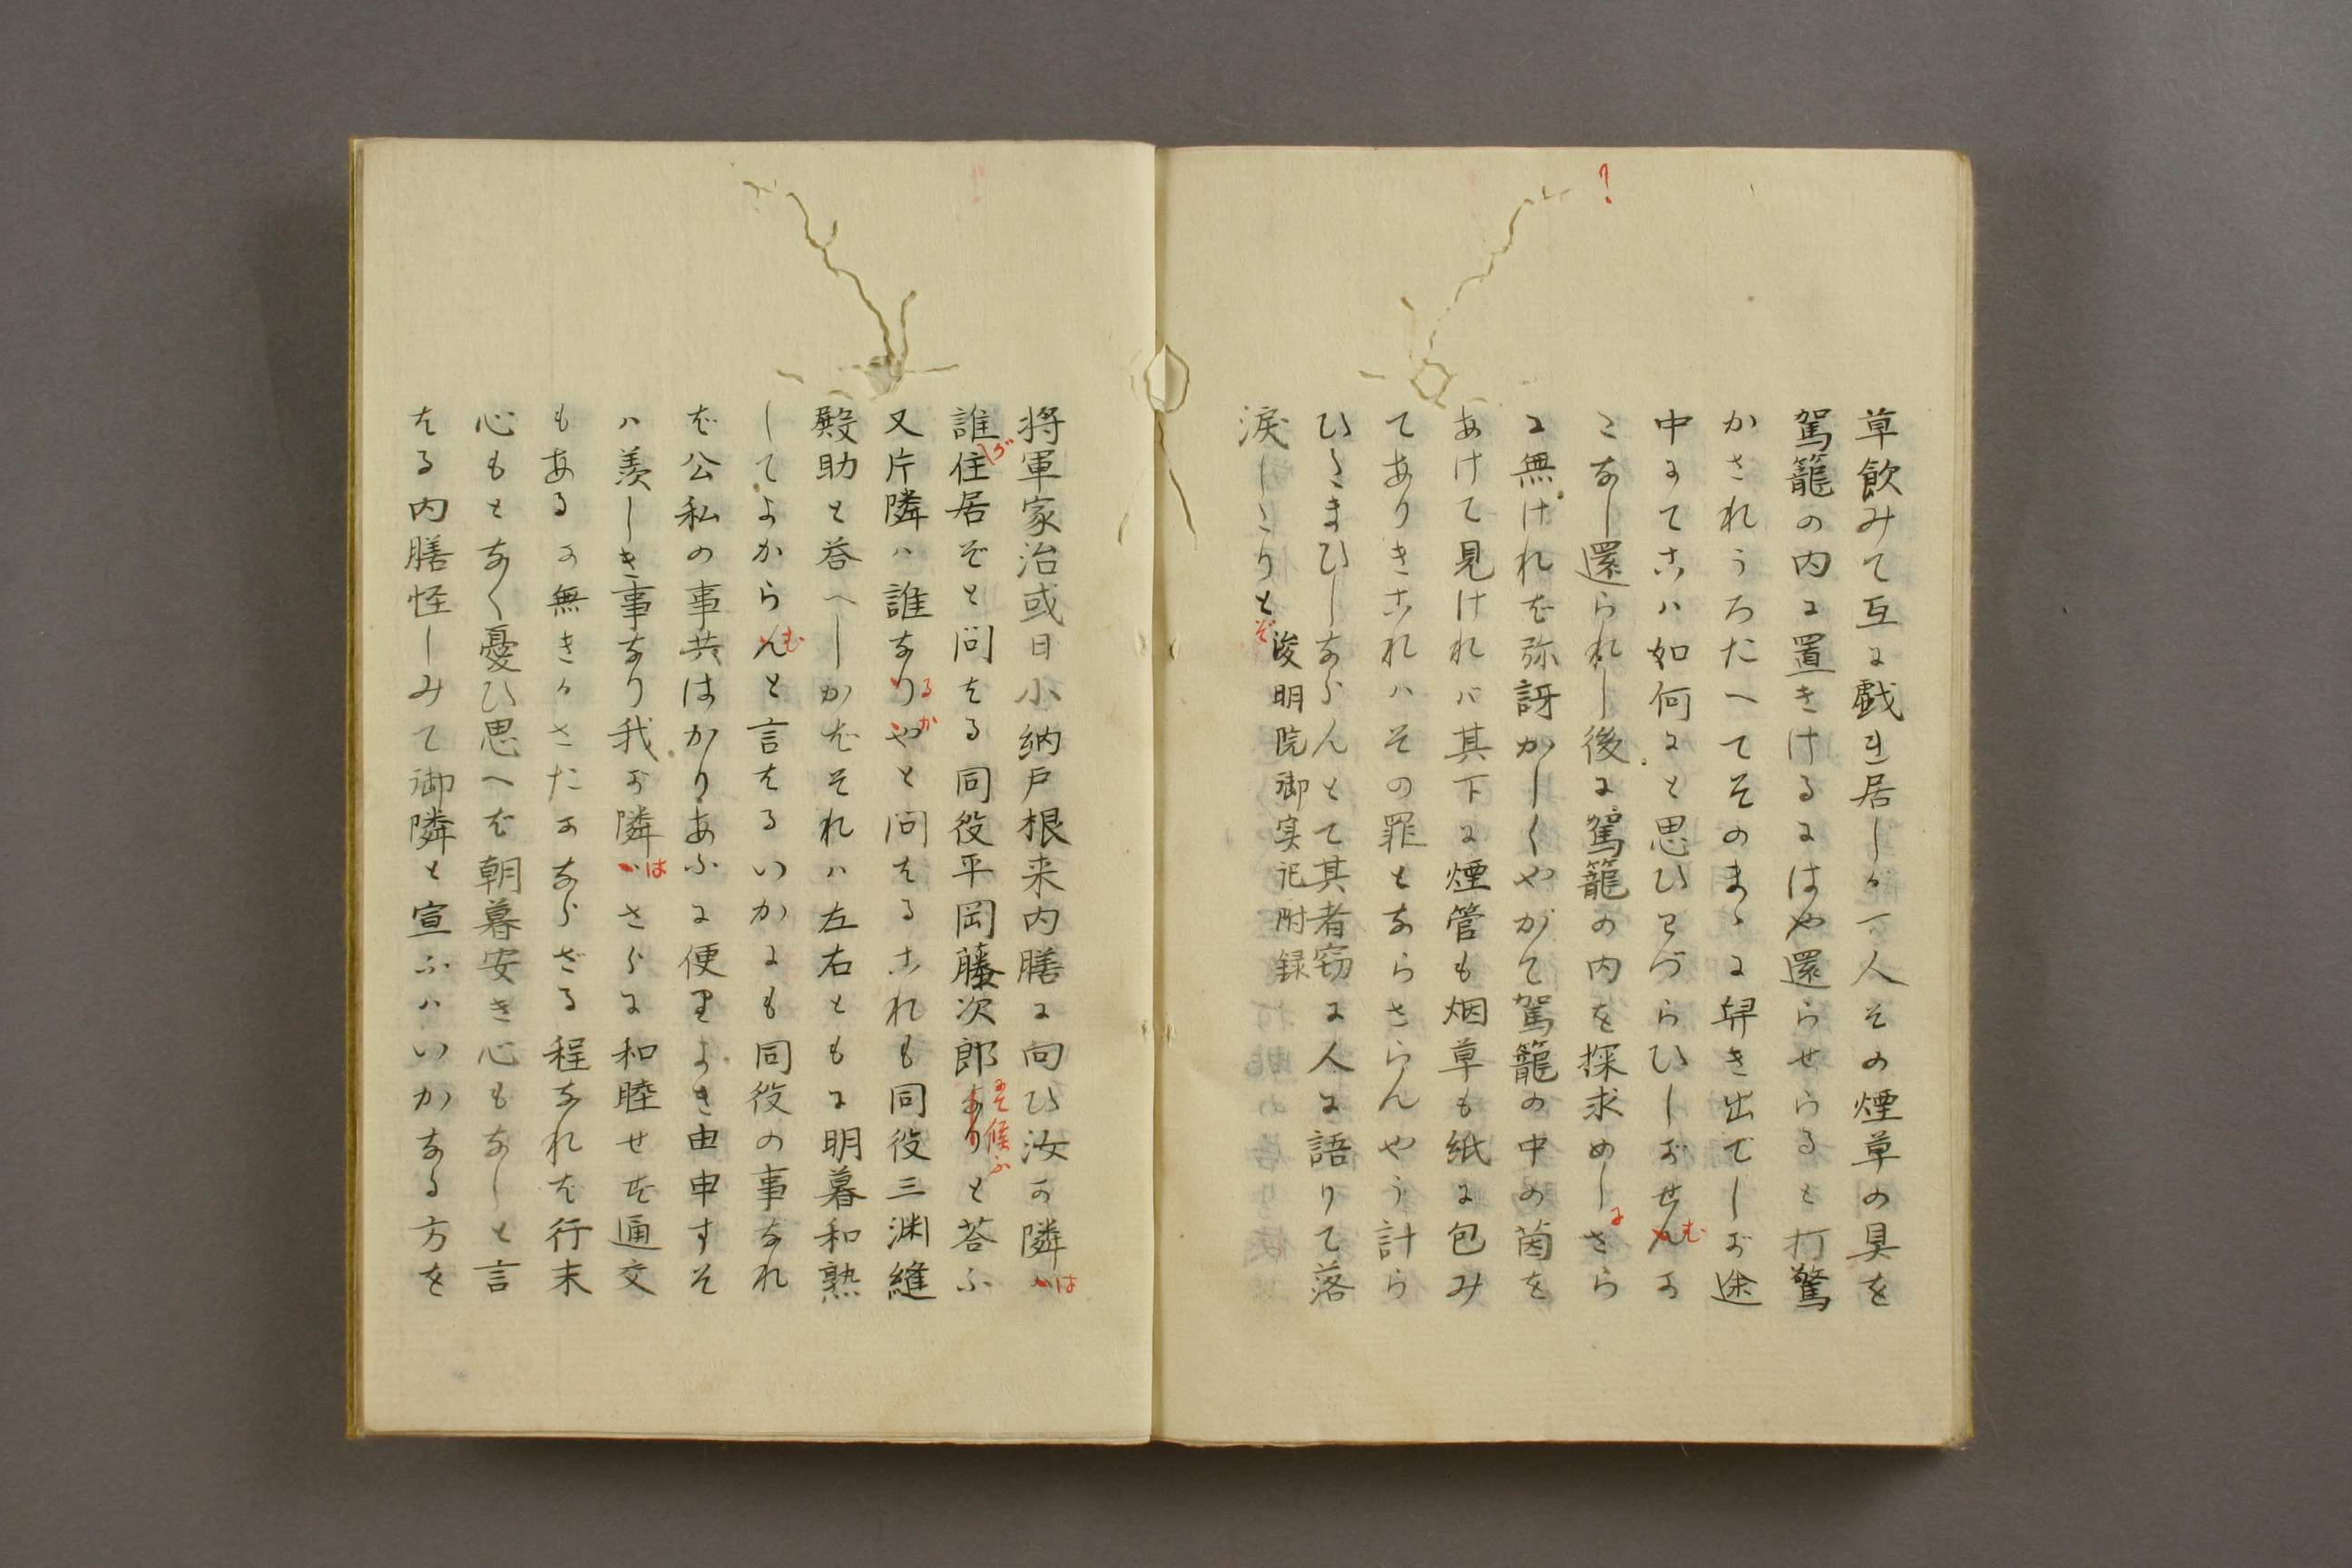 草飲みて互に戯れ居しが下人その煙草の具を
駕籠の内に置きけるにはや還らせらると打驚
かされうろたへてそのまゝに舁き出でしが途
中にてこハ如何にと思ひわづらひしがせんむか
こなし還られし後に駕籠の内を探求めしにさら
に無けれど弥訝かしくやがて駕籠の中の茵を
あけて見ければ其下に煙管も烟草も紙に包み
てありきこれハその罪とならさらんやう計ら
ひたまひしならんとて其者窃に人に語りて落
涙しけりとぞ 浚明院御実記附録
将軍家治或日小納戸根来内膳に向ひ汝が隣ハは
誰が住居ぞと問ける同役平岡藤次郎ありにて候ふと答ふ
又片隣ハ誰なりやるかと問けるこれも同役三渊縫
殿助と答へしかばそれハ左右ともに明暮和熟
してよからんむと言けるいかにも同役の事なれ
ば公私の事共はかりあふに便里よき由申すそ
ハ羨しき事なり我が隣ハはさらに和睦せず通交
もあるか無きかさだかならざる程なれば行末
心もとなく憂ひ思へば朝暮安き心もなしと言
ける内膳怪しみて御隣と宣ふハいかなる方を